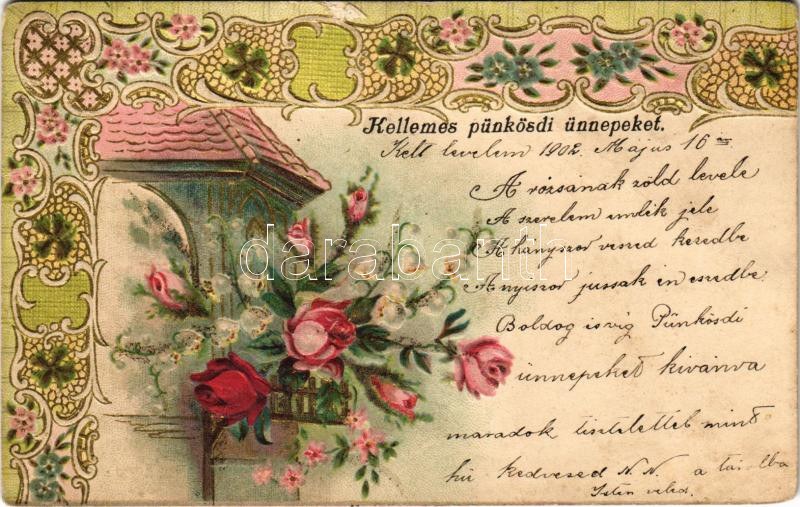 Kellemes pünkösdi ünnepeket.
Kelt levelem 1902. Május 16 án
A rózsának zöld levele
A szerelem emlék jele
A hányszor veszed kezedbe
Anyiszor jussak én eszedbe.
Boldog is víg Pünkösdi
ünnepeket kivánva
maradok tisztelettel mint
hü kedvesed N.N. a távolba
Isten veled.
darabanth